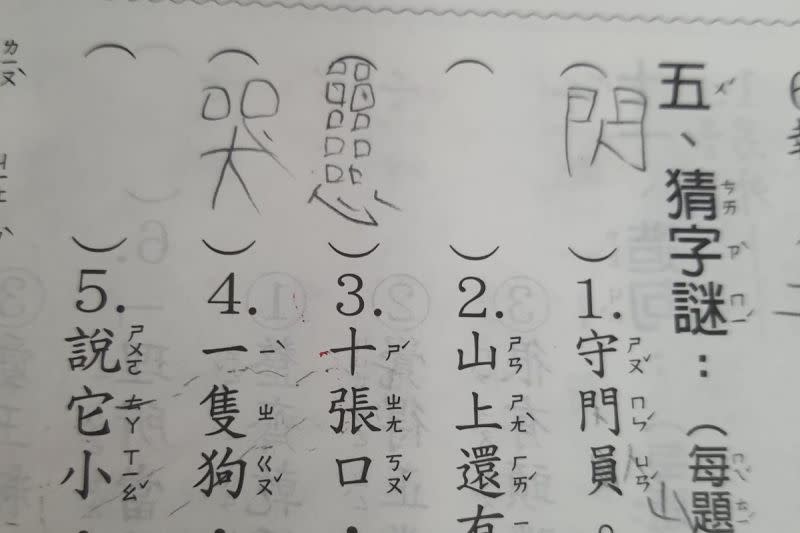 五、猜字謎：（每題
（閃）1.守門員。
（ ）2.山上還有
（ ）3.十張口
（哭）4.一隻狗
（ ）5.說它小